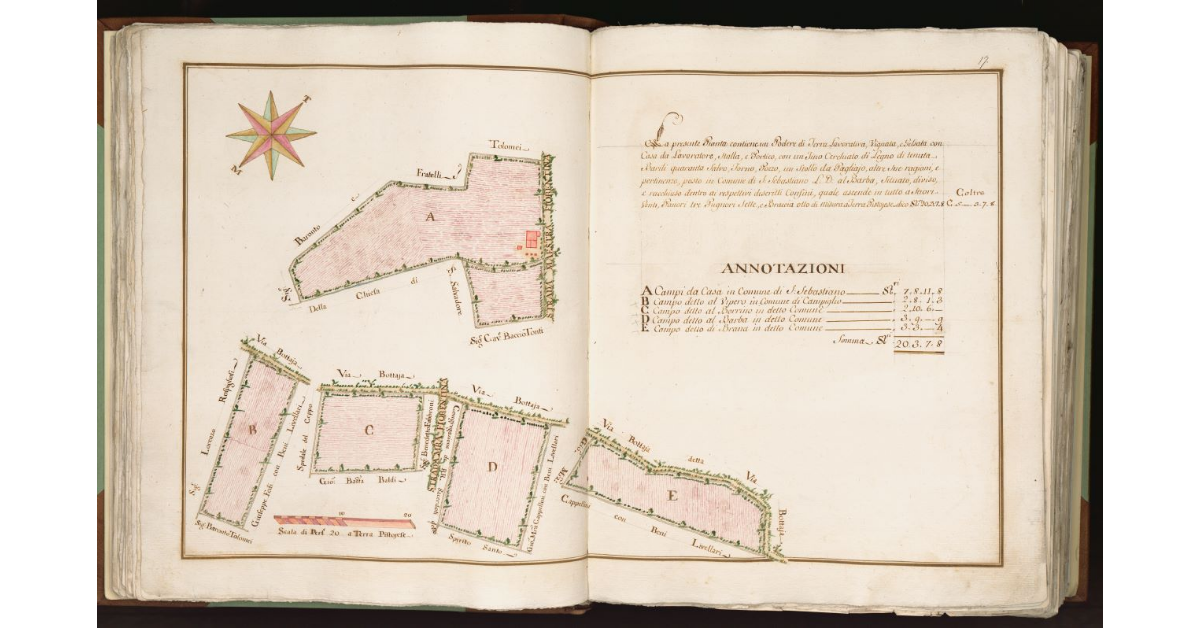 17
T
M
La presente Pianta contiene un Podere di Terra Lavorativa, Vignata, e Gelsata con
Casa da Lavoratore, Stalla, e Portico, con un Tino Cerchiato di Legno di tenuta
Barili quaranta Salvo, Forno, Pozzo, un Stollo da Pagliajo, altre sue ragioni, e
pertinenze, posto in Comune di S. Sebastiano L. D. al Barba, situato, diviso,
e racchiuso dentro ai respettivi descritti Confini, quale ascende in tutto a
Venti, Panori tre Pugnori Sette, e Braccia otto di misura a Terra Pistojese dico
Coltre
C. 5 — 3. 7. 8
ANNOTAZIONI
A Campi da Casa in Comune di S. Sebastiano 7. 8. 11. 8
B Campo detto al Vipero in Comune di Campiglio 2. 8. 1. 3
C Campo detto al Berrino in detto Comune 2. 10. 6. —
D Campo detto al Barba in detto Comune 3. 9. — 9
E Campo detto di Brana in detto Comune 3. 3. — 4
Somma 20. 3. 7. 8
Tolomei
Fratelli
Baronto
A
Sig.
Della Chiesa di S. Salvadore
Sig. Cav. Baccio Tonti
Via Bottaja
Via Bottaja
Via Bottaja
Sig. Lorenzo
B
Giuseppe Fedi con Beni Livellari
Sig. Baronto Tolomei
Spedale del Ceppo
C
Baffa Baldi
STRADA
D
Cappellini con Beni Livellari
Spirito Santo
Via Bottaja
detta Via
Bottaja
E
Cappellini con Beni Livellari
10 20
Scala di Per. 20 a Terra Pistojese